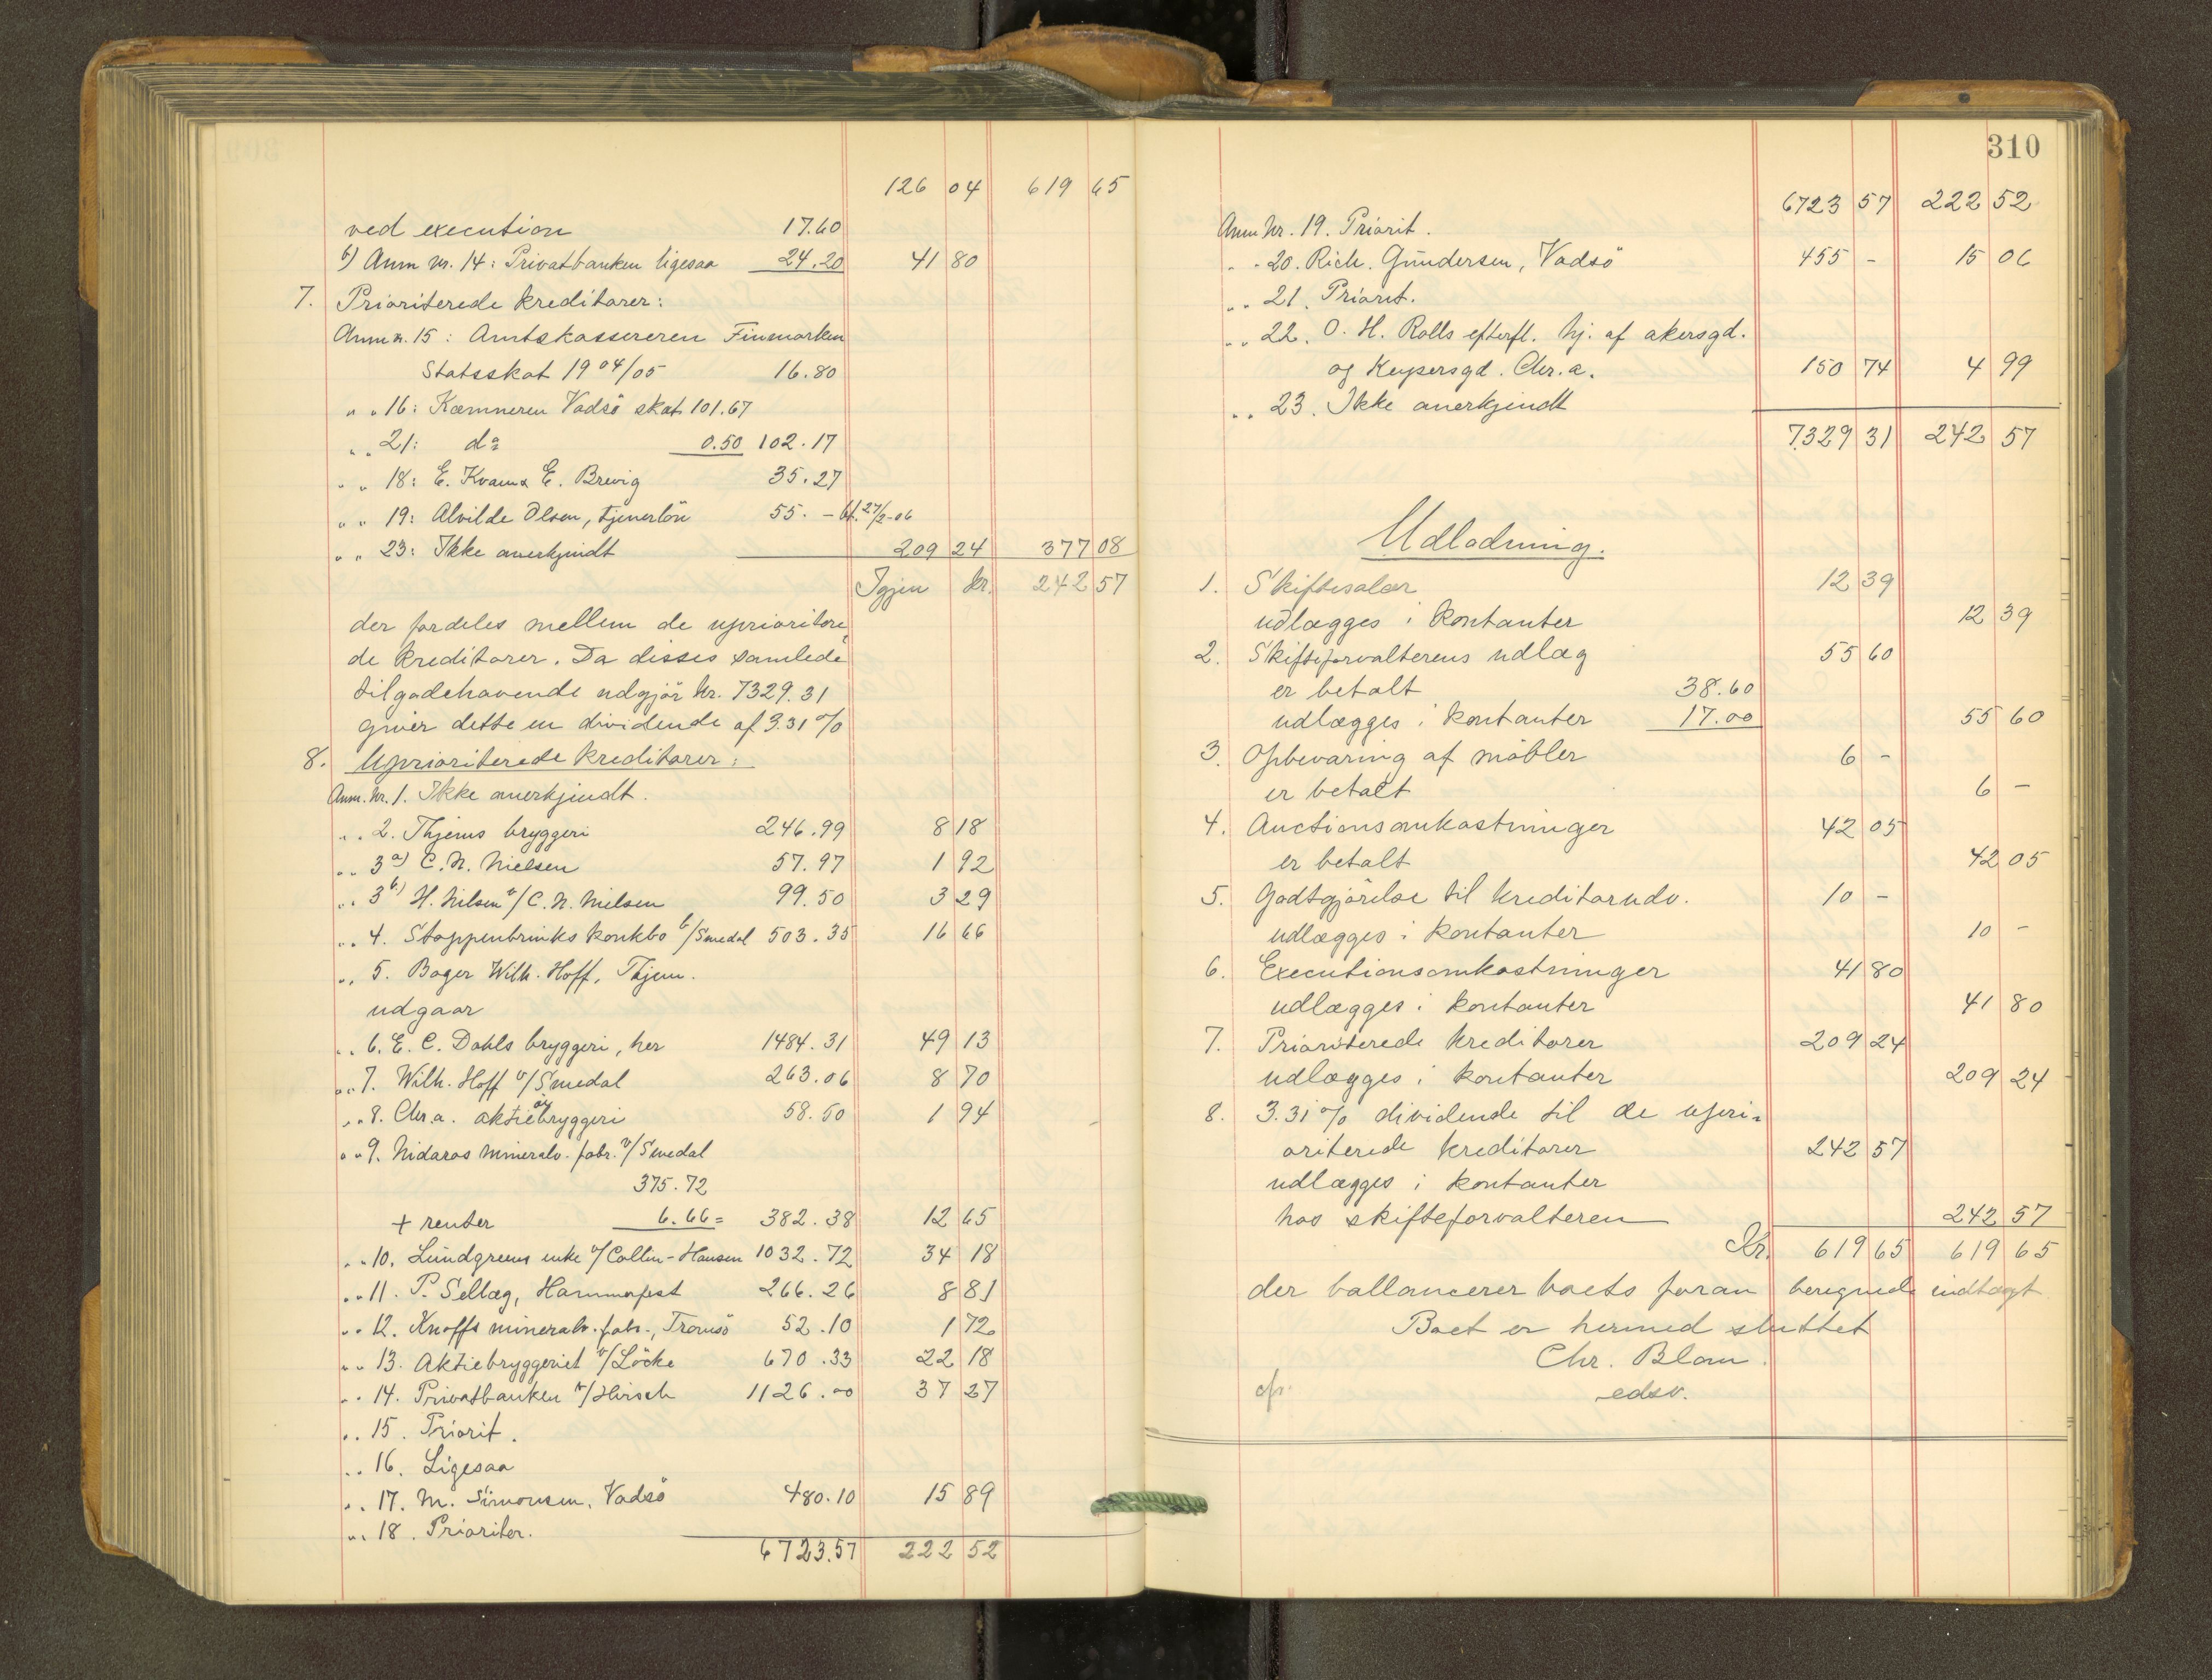 126 04 619 65
ved execution 17.60
b) Anm nr. 14: Privatbanken ligesaa 24.20 41 80
7. Prioriterede kreditorer:
Anm n. 15: Amtskassereren Finmarken
Statsskat 1904/05 16.80
" " 16: Kæmneren Vadsö skat 101.67
" " 21: do 0.50 102.17
" " 18: E. Kvam & E. Brevig 35.27
" " 19: Alvilde Olsen, tjenerlön 55.- bt. 27/2-06
" " 23: Ikke anerkjendt 209 24 377 08
Igjen kr. 242 57
der fordeles mellem de uprioritere
de kreditorer. Da disses samlede
tilgodehavende udgjör kr. 7329.31
giver dette en dividende af 3.31 %
8. Uprioriterede kreditorer:
Anm. nr. 1. Ikke anerkjendt.
" " 2. Thjems bryggeri 246.99 8 18
" " 3a) C. N. Nielsen 57.97 1 92
" " 3b) H. Nilsen v/ C. N. Nielsen 99.50 3 29
" " 4. Stoppenbrinks konkbo v/ Smedal 503.35 16 66
" " 5. Bager Wilh. Hoff, Thjem.
udgaar
" " 6. E. C. Dahls bryggeri, her 1484.31 49 13
" " 7. Wilh. Hoff v/ Smedal 263.06 8 70
" " 8. Chr.a. aktieölbryggeri 58.50 1 94
" " 9. Nidaros mineralv. fabr. v/ Smedal
375.72
+ renter 6.66 = 382.38 12 65
" " 10. Lundgreens enke v/ Collin-Hansen 1032.72 34 18
" " 11. P. Sellæg, Hammerfest 266.26 8 81
" " 12. Knoffs mineralv. fabr., Tromsö 52.10 1 72
" " 13. Aktiebryggeriet v/ Löcke 670.33 22 18
" " 14. Privatbanken v/ Hirsch 1126.00 37 27
" " 15. Priorit.
" " 16. Ligesaa
" " 17. M. Simonsen, Vadsö 480.10 15 89
" " 18. Prioriter.
6723.57 222 52
310
6723 57 222 52
Anm nr. 19. Priorit.
" " 20. Rich. Gundersen, Vadsö 455 - 15 06
" " 21. Priorit.
" " 22. O. H. Rolls efterfl. hj. af akersgd.
og Keysersgd. Chr.a. 150 74 4 99
" " 23. Ikke anerkjendt
7329 31 242 57
Udlodning.
1. Skiftesalær 12 39
udlægges i kontanter 12 39
2. Skifteforvalterens udlæg 55 60
er betalt 38.60
udlægges i kontanter 17.00 55 60
3. Opbevaring af möbler 6 -
er betalt 6 -
4. Auctionsomkostninger 42 05
er betalt 42 05
5. Godtgjörelse til kreditorudv. 10 -
udlægges i kontanter 10 -
6. Executionsomkostninger 41 80
udlægges i kontanter 41 80
7. Prioriterede kreditorer 209 24
udlægges i kontanter 209 24
8. 3.31 % dividende til de upri-
oriterede kreditorer 242 57
udlægges i kontanter
hos skifteforvalteren 242 57
Kr. 619 65 619 65
der ballancerer boets foran beregnede indtægt
Boet er hermed sluttet
Chr. Blom.
cfr. edsv.